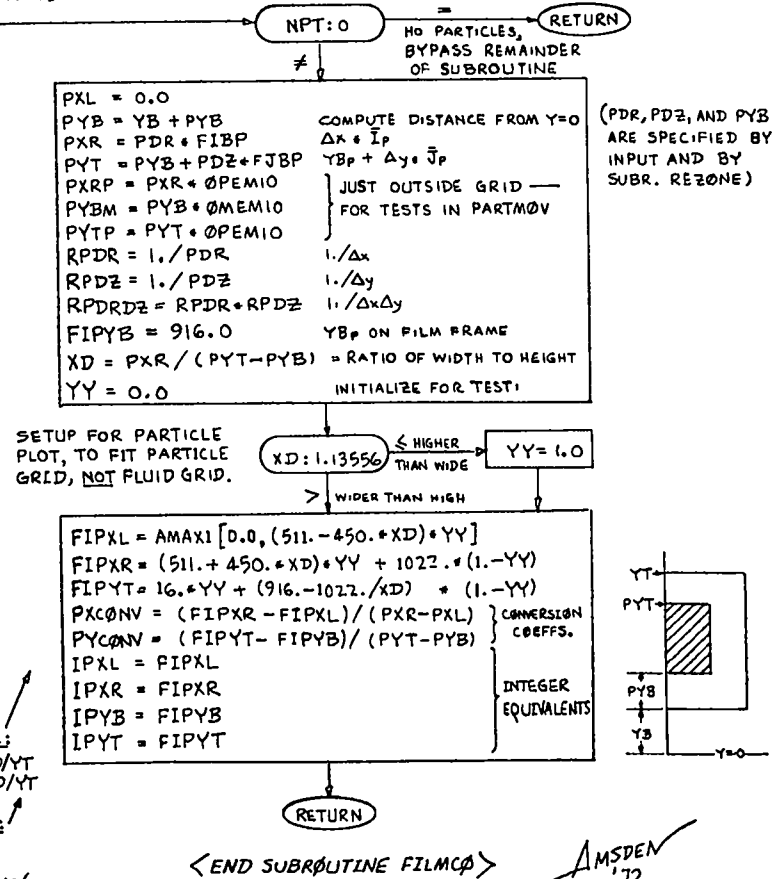 NPT: 0
=
NO PARTICLES,
BYPASS REMAINDER
OF SUBROUTINE
RETURN
≠
PXL = 0.0
PYB = YB + PYB COMPUTE DISTANCE FROM Y=0
PXR = PDR * FIBP Δx * Īp
PYT = PYB + PDZ * FJBP YBp + Δy * J̄p
PXRP = PXR * ØPEM10
PYBM = PYB * ØMEM10
PYTP = PYT * ØPEM10
JUST OUTSIDE GRID —
FOR TESTS IN PARTMØV
RPDR = 1./PDR 1./Δx
RPDZ = 1./PDZ 1./Δy
RPDRDZ = RPDR * RPDZ 1./ΔxΔy
FIPYB = 916.0 YBp ON FILM FRAME
XD = PXR / (PYT-PYB) = RATIO OF WIDTH TO HEIGHT
YY = 0.0 INITIALIZE FOR TEST:
(PDR, PDZ, AND PYB
ARE SPECIFIED BY
INPUT AND BY
SUBR. REZONE)
SETUP FOR PARTICLE
PLOT, TO FIT PARTICLE
GRID, NOT FLUID GRID.
XD: 1.13556
≤ HIGHER
THAN WIDE
YY = 1.0
> WIDER THAN HIGH
FIPXL = AMAX1 [0.0, (511.-450.*XD)*YY]
FIPXR = (511.+450.*XD)*YY + 1022.*(1.-YY)
FIPYT = 16.*YY + (916.-1022./XD) * (1.-YY)
PXCØNV = (FIPXR - FIPXL)/(PXR-PXL)
PYCØNV = (FIPYT - FIPYB)/(PYT-PYB)
CONVERSION
COEFFS.
IPXL = FIPXL
IPXR = FIPXR
IPYB = FIPYB
IPYT = FIPYT
INTEGER
EQUIVALENTS
YT
PYT
PYB
YB
Y=0
/YT
/YT
RETURN
<END SUBRØUTINE FILMCØ>
AMSDEN
'72